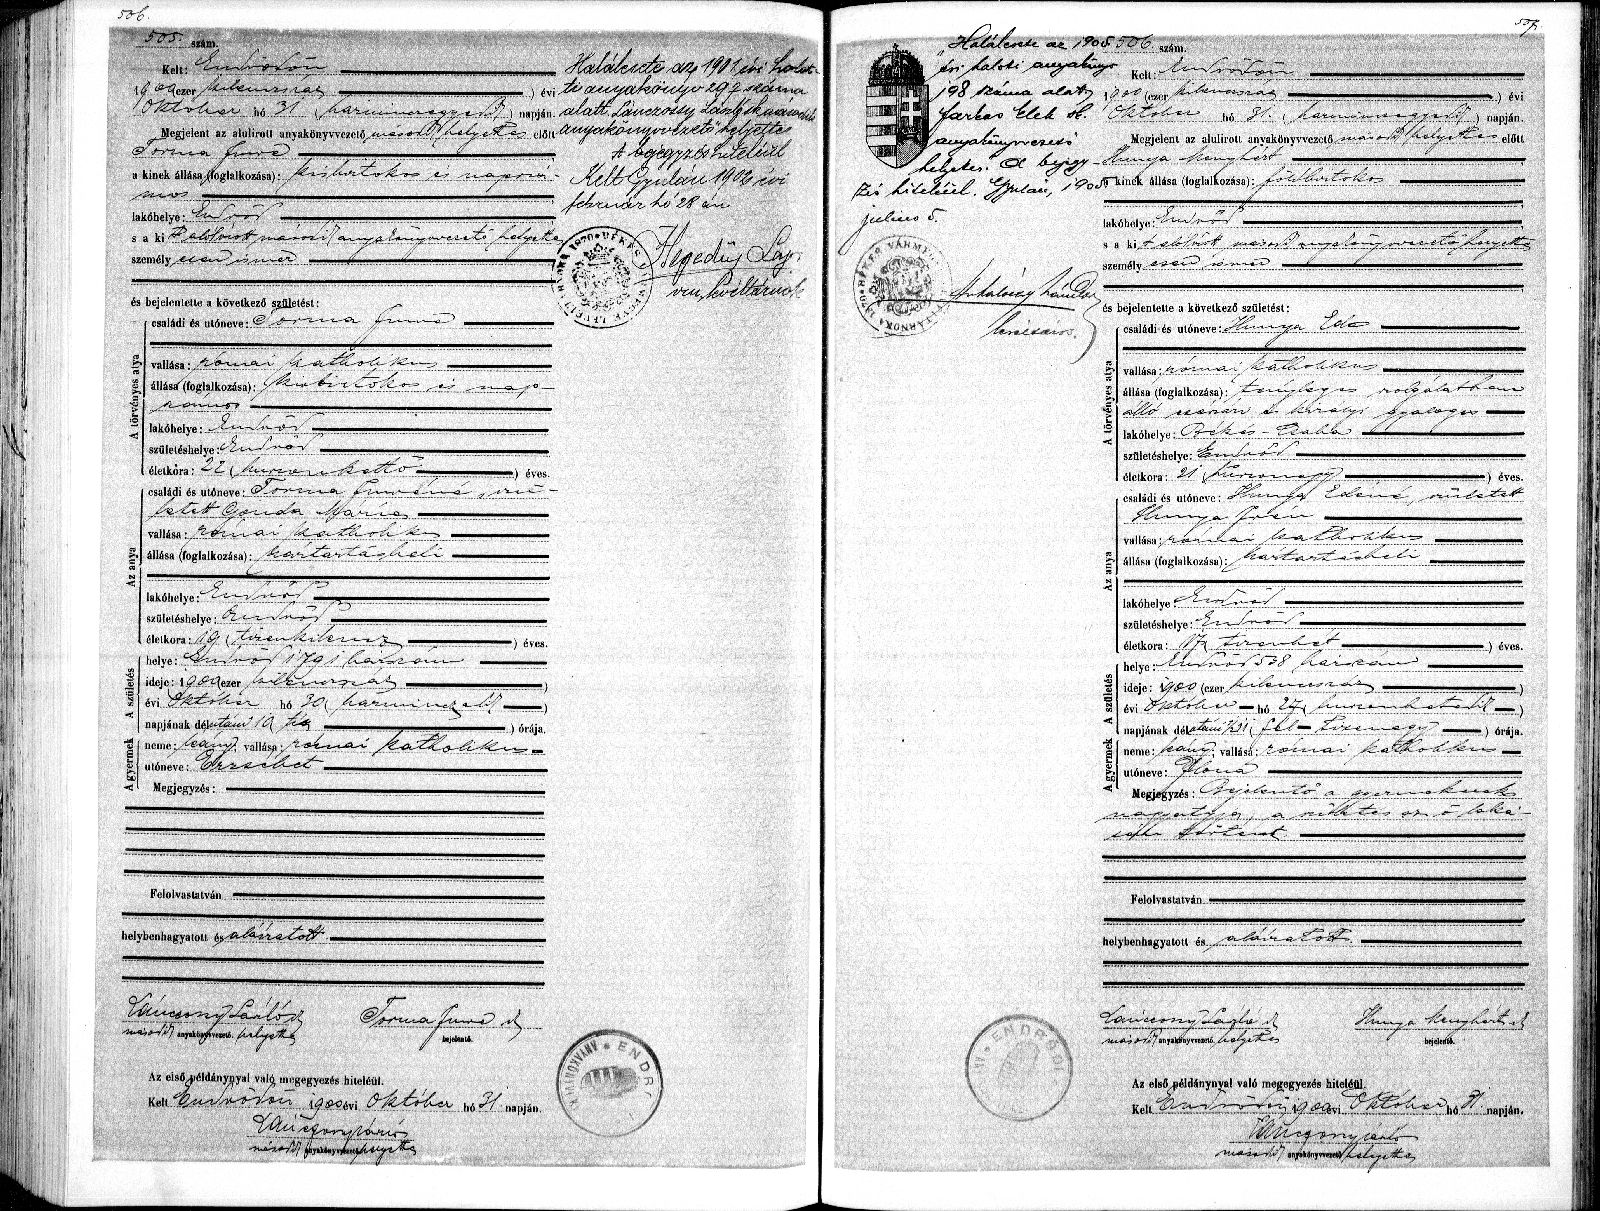 506.
505. szám.
Kelt: Endrődön
1900 (ezer kilencszáz) évi
Október hó 31 (harminczegyedik) napján.
Megjelent az alulirott anyakönyvvezető másodh. helyettes előtt
Torma Imre
a kinek állása (foglalkozása): kisbirtokos és napszá-
mos
lakóhelye: Endrőd
s a ki alólirott másodh. anyakönyvvezető helyettes
személyesen ismer
és bejelentette a következő születést:
A törvényes atya
családi és utóneve: Torma Imre
vallása: római katholikus
állása (foglalkozása): kisbirtokos és nap-
számos
lakóhelye: Endrőd
születéshelye: Endrőd
életkora: 22 (huszonkettő) éves.
Az anya
családi és utóneve: Torma Imréné, szü-
letett Gonda Mária
vallása: római katholikus
állása (foglalkozása): háztartásbeli
lakóhelye: Endrőd
születéshelye: Endrőd
életkora: 19 (tizenkilencz) éves.
A születés
helye: Endrőd 1791 házszám
ideje: 1900 (ezer kilencszáz)
évi Október hó 30 (harminczadik)
napjának délutáni 10 tíz órája.
A gyermek
neme: leány. vallása: római katholikus
utóneve: Erzsébet
Megjegyzés:
Felolvastatván
helybenhagyatott és aláiratott
Lánczony László
Torma Imre
anyakönyvvezető helyettes
bejelentő.
Az első példánynyal való megegyezés hiteléül.
Kelt Endrődön 1900 évi Október hó 31 napján.
anyakönyvvezető helyettes
Halálesete az 1901 évi halot-
ti anyakönyv 297 száma
alatt
anyakönyvvezető helyettes
A bejegyzés hiteléül
Kelt Gyulán 1902 évi
február hó 28 án
Hegedüs
507.
Halálesete az 1905
évi haloti anyakönyv
198 száma alatt
Farkas Elek
anyakönyvvezető
helyettes. A bejegy-
zés hiteléül. Gyula, 1905
julius 5.
levéltáros.
506 szám.
Kelt: Endrődön
1900 (ezer kilencszáz) évi
Október hó 31. (harminczegyedik) napján.
Megjelent az alulirott anyakönyvvezető másodh. helyettes előtt
Hunya Menyhért
a kinek állása (foglalkozása): földbirtokos
lakóhelye: Endrőd
s a ki alólirott másodh. anyakönyvvezető helyettes
személyesen ismer
és bejelentette a következő születést:
A törvényes atya
családi és utóneve: Hunya Ede
vallása: római katholikus
állása (foglalkozása): tényleges szolgálatban
álló császári s királyi gyalogos
lakóhelye: Békés-Csaba
születéshelye: Endrőd
életkora: 21 (huszonegy) éves.
Az anya
családi és utóneve: Hunya Edéné, született
Hunya
vallása: római katholikus
állása (foglalkozása): háztartásbeli
lakóhelye: Endrőd
születéshelye: Endrőd
életkora: 17 tizenhét éves.
A születés
helye: Endrőd 528 házszám
ideje: 1900 (ezer kilencszáz)
évi Október hó 27 (huszonhetedik)
napjának délutáni (fél tizenegy) órája.
A gyermek
neme: leány. vallása: római katholikus
utóneve: Ilona
Megjegyzés: Bejelentő a gyermeknek
nagyatyja, a szülés az ő laká-
sán történt.
Felolvastatván
helybenhagyatott és aláiratott
Lánczony László
Hunya Menyhért
anyakönyvvezető helyettes
bejelentő.
Az első példánynyal való megegyezés hiteléül.
Kelt Endrődön 1900 évi Október hó 31 napján.
anyakönyvvezető helyettes